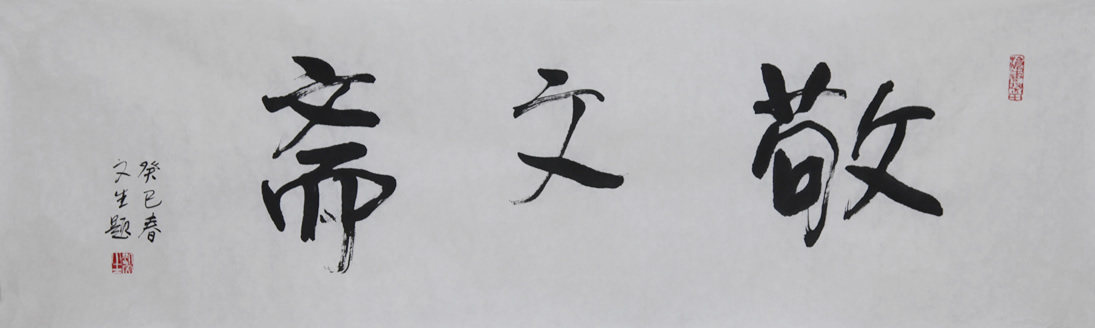 敬文斋
癸巳春
文生题